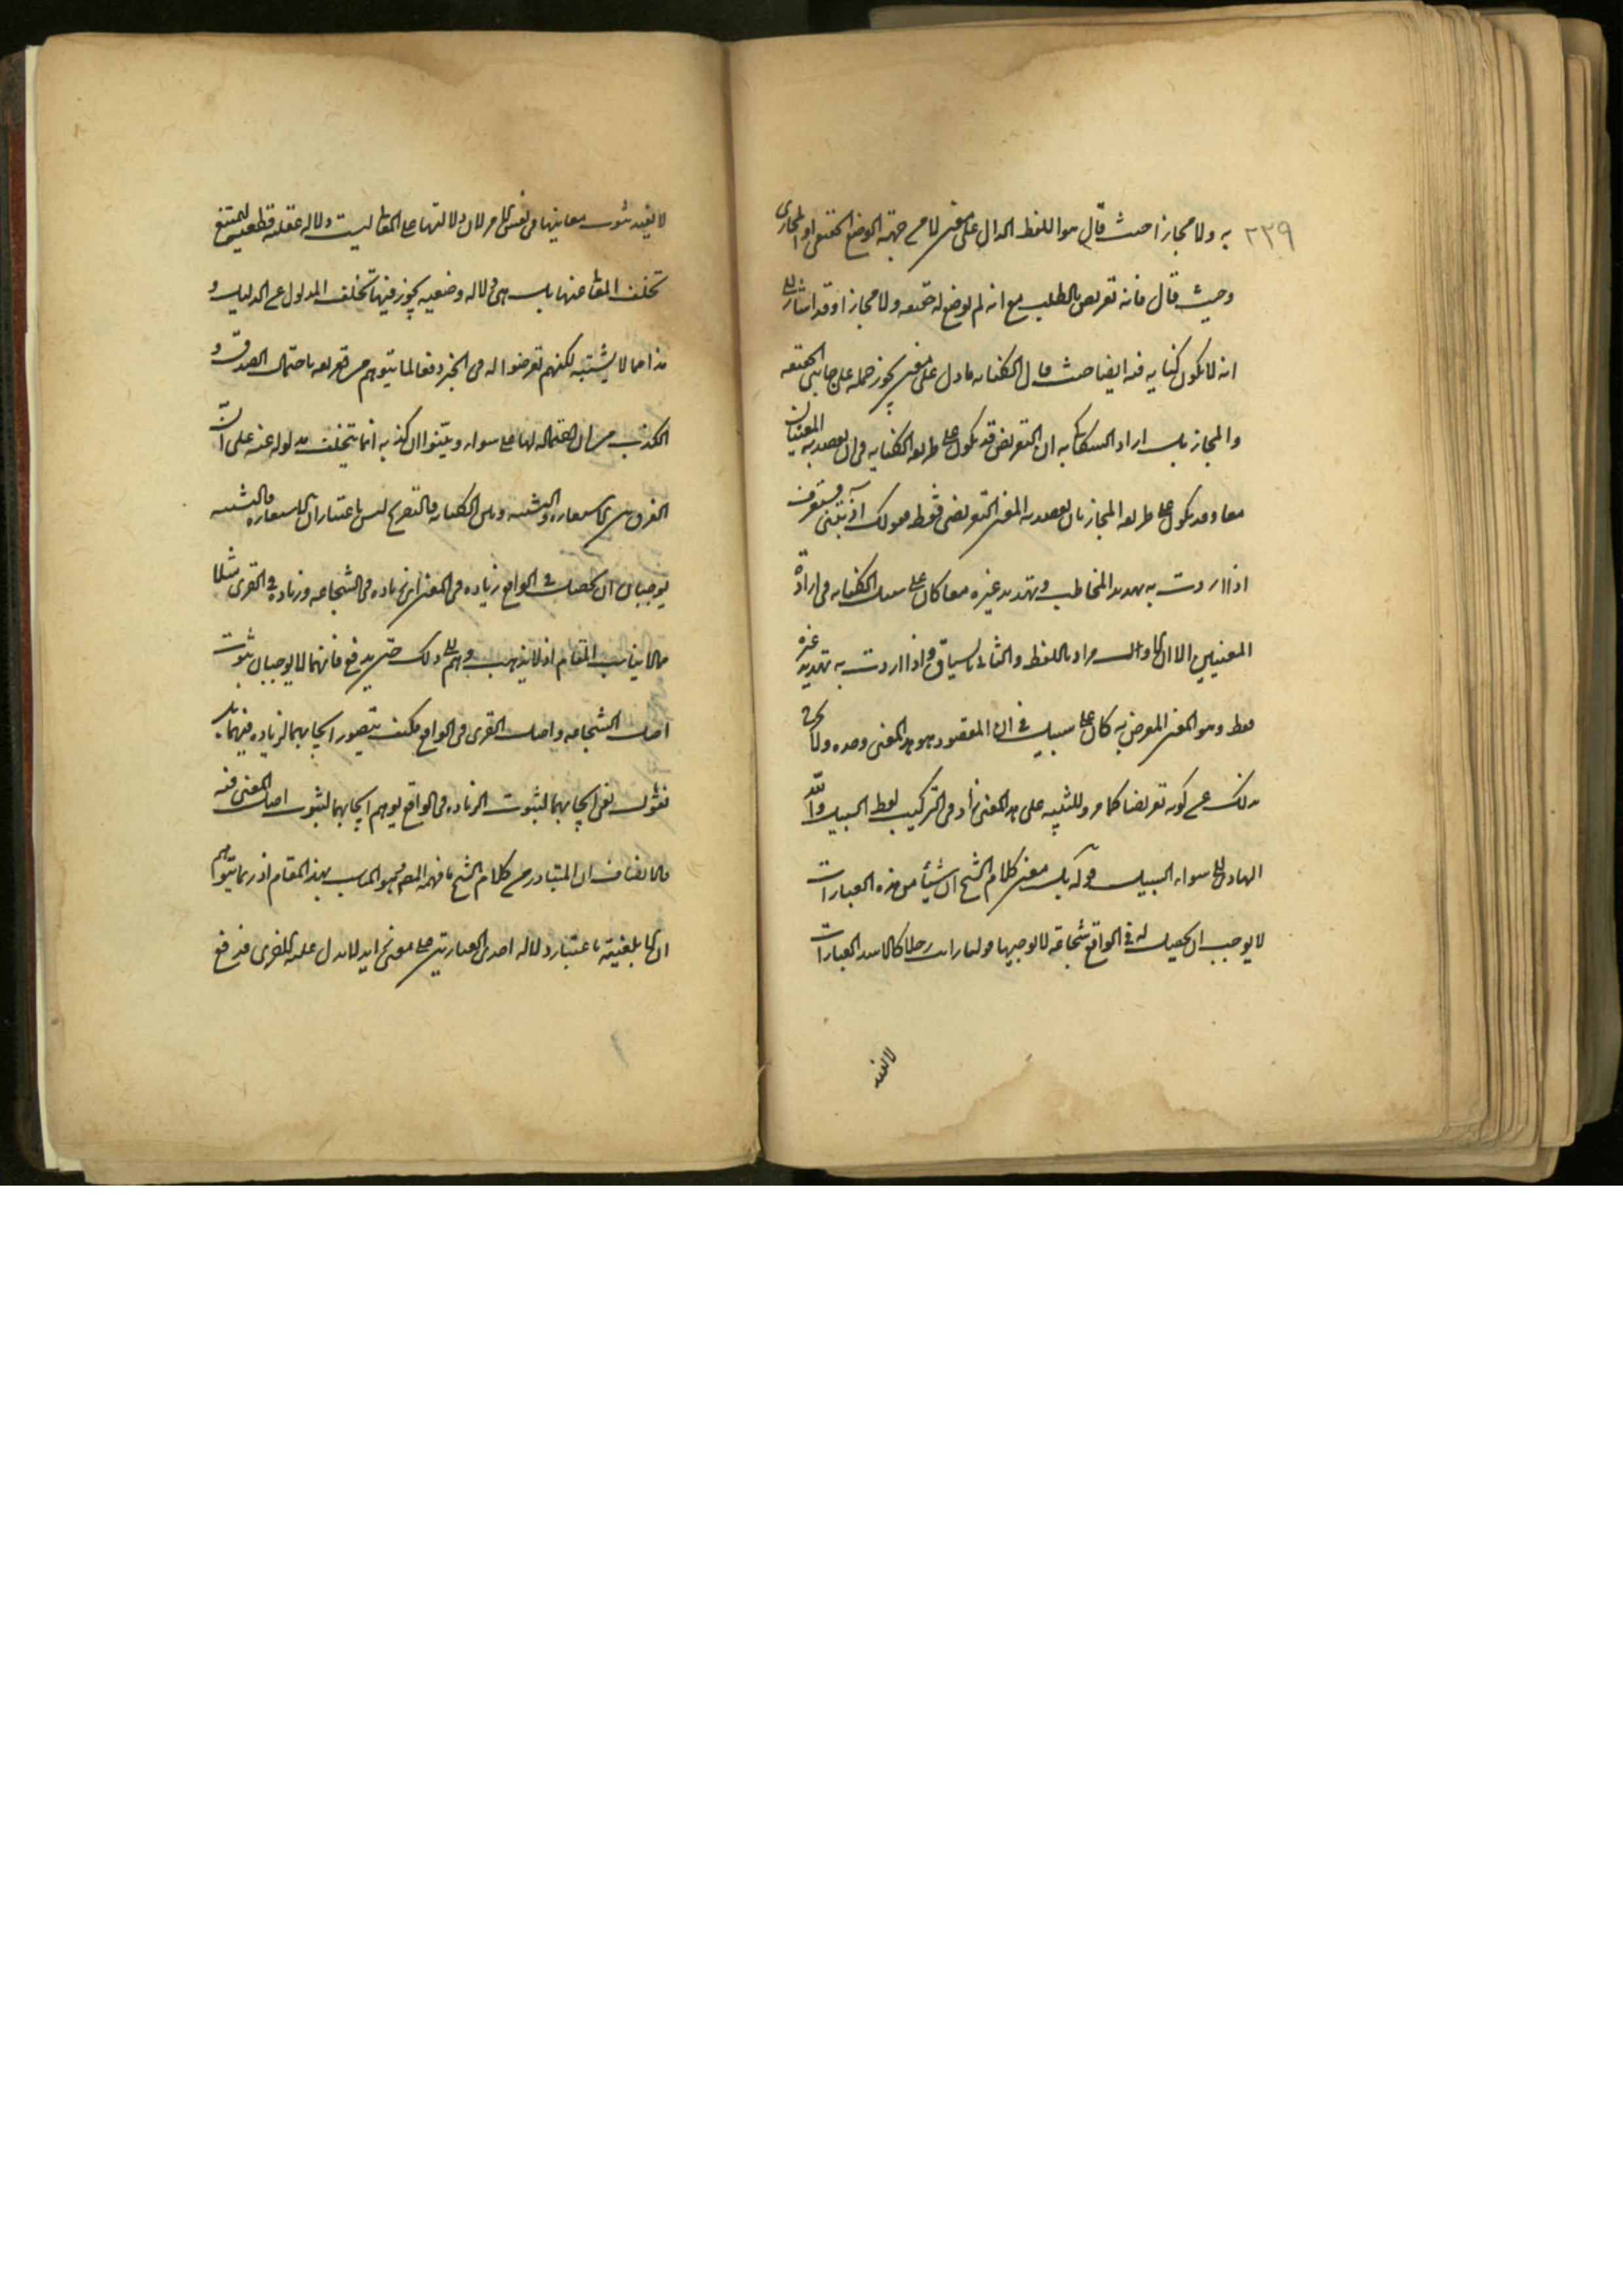 ٢٣٩
به ولا مجازا حيث قال هو اللفظ الدال على معنى لا من جهة الوضع الحقيقي او المجازى
وحيث قال فانه تعريض بالطلب مع انه لم يوضع له حقيقه ولا مجازا وقد اشار الى
انه لا يكون كنايه فيه ايضا حيث قال الكنايه ما دل على معنى يجوز حمله على جانبى الحقيقه
والمجاز بل اراد السكاكى به ان التعريض قد يكون على طريقه الكنايه فى ان يقصد به المعنيان
معا وقد يكون على طريقه المجاز بان يقصد به المعنى التعريضى فقط فقولك آذيتنى فستعرف
اذا اردت به تهديد المخاطب وتهديد غيره معا كان على سبيل الكنايه فى ارادة
المعنيين الا ان الاول مراد باللفظ والثانى بالسياق واذا اردت به تهديد غيره
فقط وهو المعنى المعرض به كان على سبيل المجاز فى ان المقصود هو هذا المعنى وحده ولا يخرج
بذلك عن كونه تعريضا كما مر وللتنبيه على هذا المعنى زاد فى التركيب لفظ السبيل والله
الهادى الى سواء السبيل قوله بل معنى كلام الشيخ ان شيأ من هذه العبارات
لا يوجب ان يحصل له فى الواقع شجاعة لا يوجبها قولنا رايت رجلا كالاسد العبارات
لا يفيد
لا يفيد ثبوت معانيها فى نفس الامر لان دلالتها على المعانى ليست دلاله عقليه قطعيه ليمتنع
تخلف المعانى عنها بل هى دلاله وضعيه يجوز فيها تخلف المدلول عن الدليل و
هذا مما لا يشتبه لكنهم تعرضوا له فى الخبر دفعا لما يتوهم من تعريفه باحتمال الصدق و
الكذب من ان احتماله لهما على سواء وبينوا ان كذبه انما يتخلف مدلوله عنه على ان
الفرق بين الاستعاره والتشبيه وبين الكنايه والتصريح ليس باعتبار ان الاستعاره والتشبيه
يوجبان ان يحصل فى الواقع زياده فى المعنى اى زياده فى الشجاعه وزياده فى القرى مثلا
مما لا يناسب المقام اذ لا يذهب وهم الى ذلك حتى يدفع فانهما لا يوجبان ثبوت
اصل الشجاعه واصل القرى فى الواقع فكيف يتصور ايجابهما لزياده فيهما بل
نقول نفى ايجابهما لثبوت الزياده فى الواقع يوهم ايجابهما لثبوت اصل المعنى فيه
فالانصاف ان المتبادر من كلام الشيخ ما فهمه المصنف وهو المناسب بهذا المقام اذ ربما يتوهم
ان الابلغيه باعتبار دلاله احدى العبارتين على معنى زايد لا يدل عليه الاخرى فيدفع